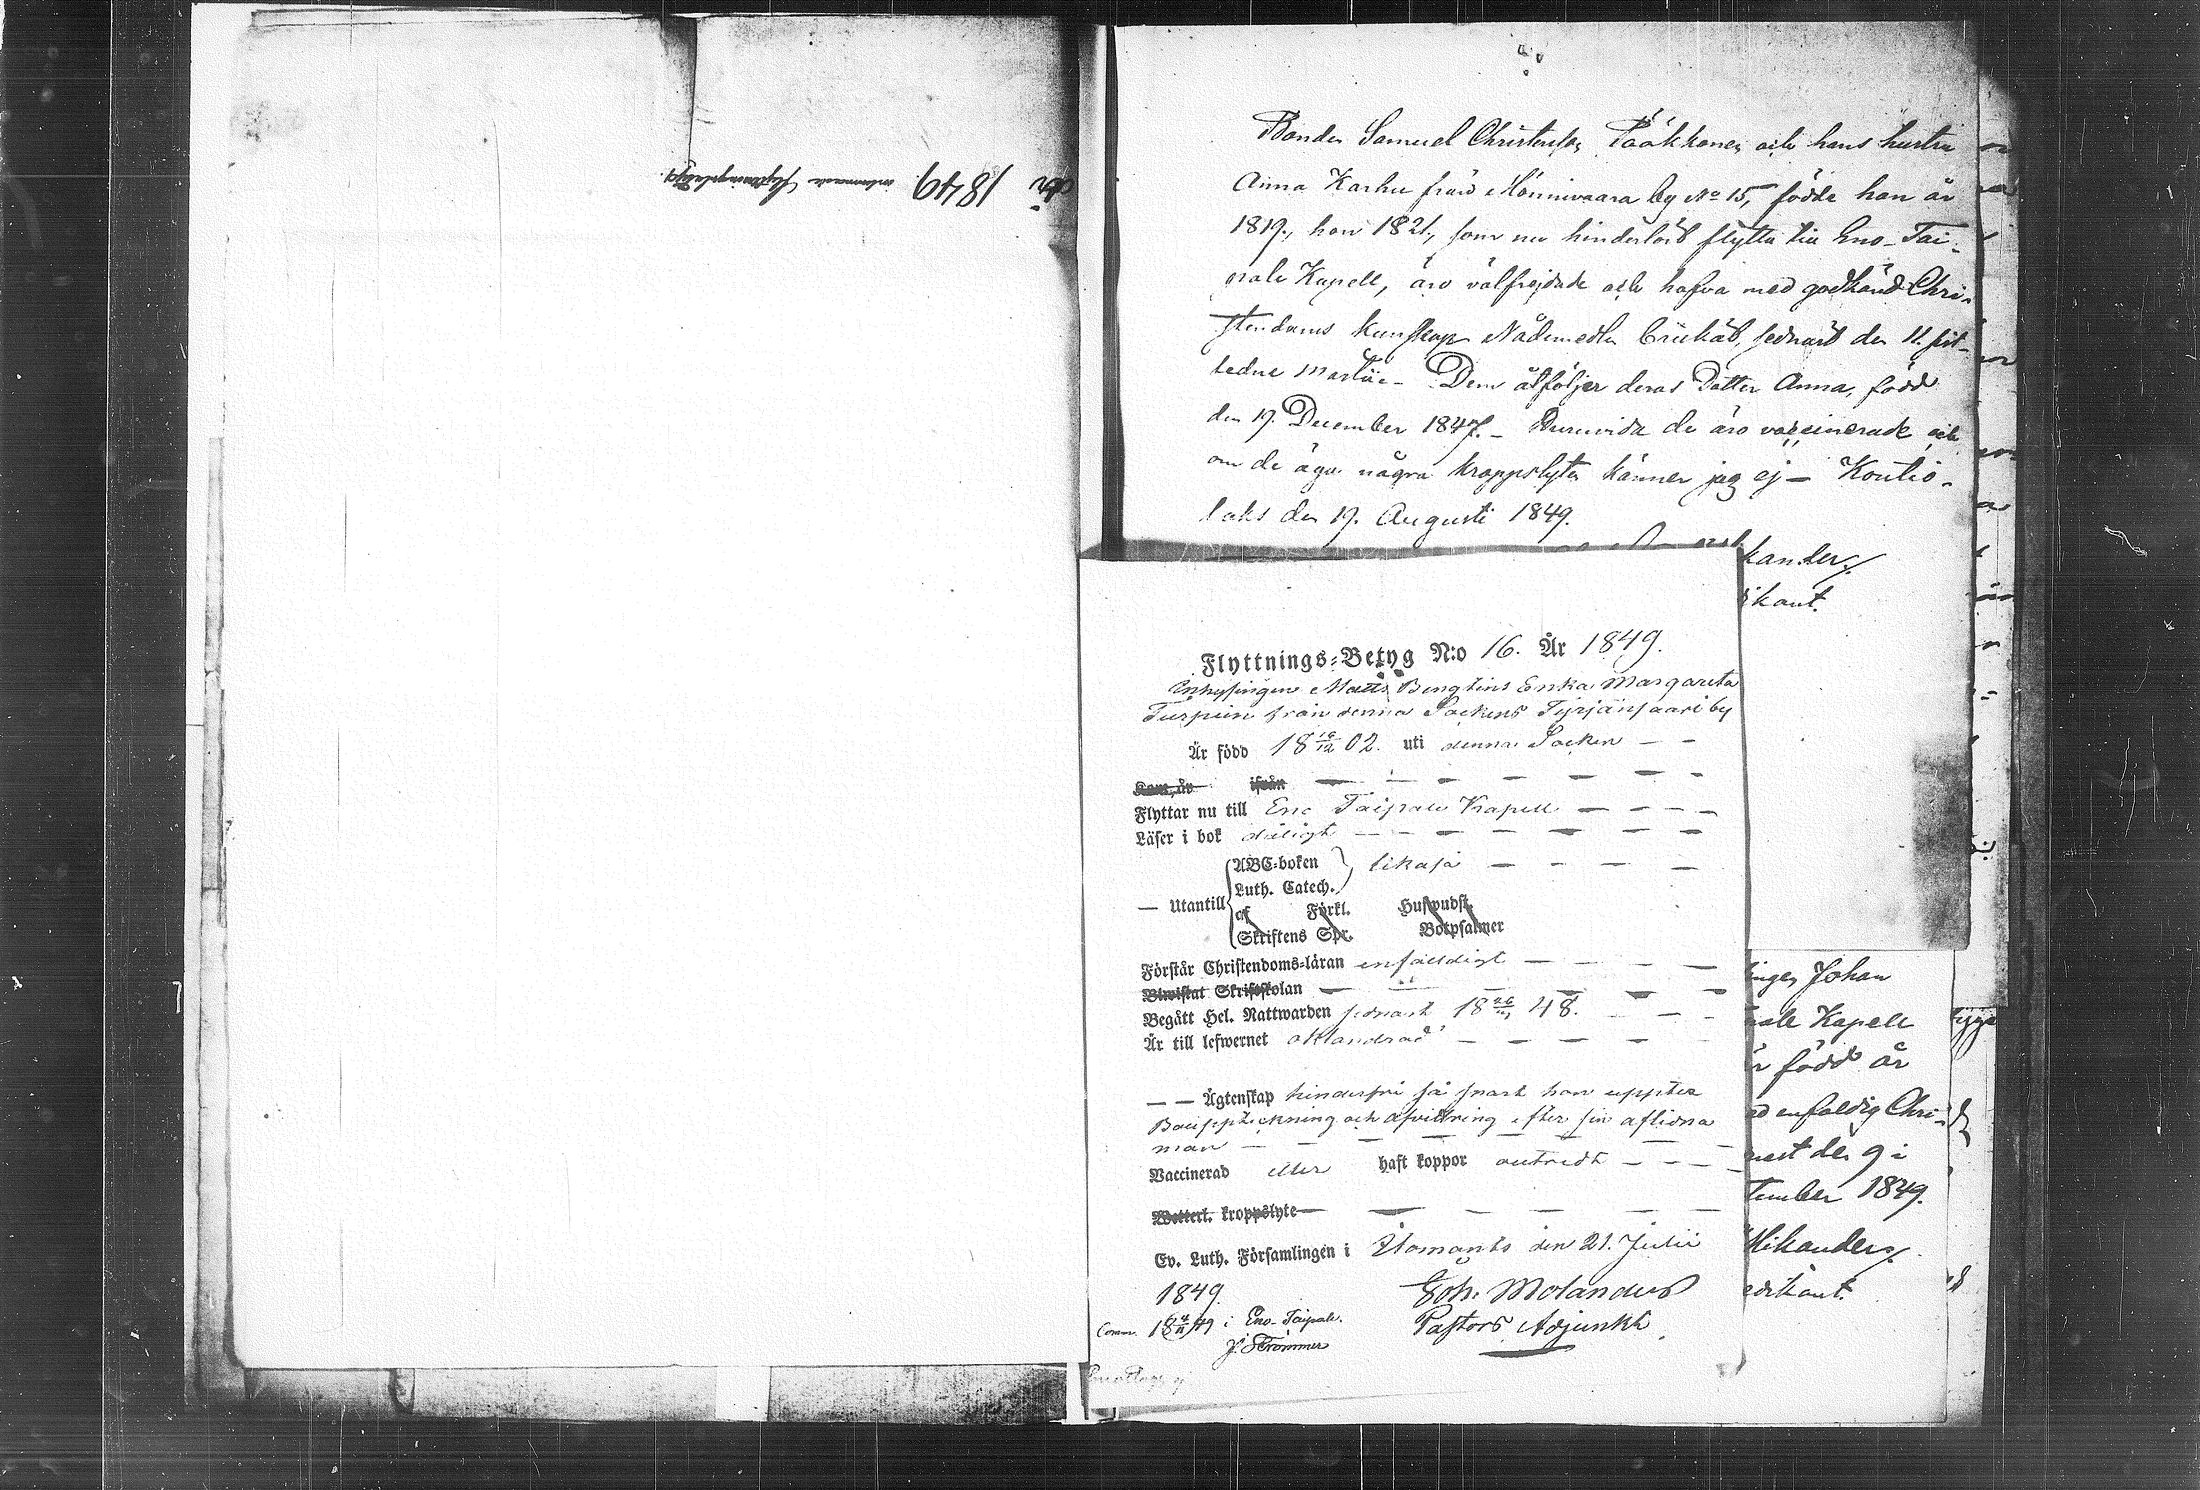 År 1849 inkomne Flyttningsbetyg.
Bonden Samuel Christersson Pääkkönen och hans hustru
Anna Karhu från Mönnivaara by No 15, födde han år
1819, hon 1821, som nu hinderlöst flytta till Eno-Tai-
pale Kapell, äro välfrejdade och hafva med godkänd Chri-
stendoms kunskap Nådemedlen brukat, sednast den 11. sist-
ledne Martii - Dem åtföljer deras Dotter Anna, född
den 19. December 1847. - Huruvida de äro vaccinerade och
om de äga några kroppslyten känner jag ej - Kontio-
laks den 19. Augusti 1849.
kander.
ikant.
Flyttnings-Betyg N:o 16. År 1849.
Inhysingen Matts Bengtins Enka Margareta
Turpein från denna Sockens Tyrjänsaari by
Är född 18 16/12 02. uti denna Socken - -
Kom, år ifrån
Flyttar nu till Eno Taipale Kapell
Läser i bok dåligt
ABC-boken likaså
Luth. Catech.
— Utantill
af Förkl. Huspudst.
Skriftens Spr. Botpsalmer
Förstår Christendoms-läran enfaldigt
Biwistat Skriftskolan
Begått Hel. Nattwarden sednast 18 48.
Är till lefwernet oklandrad
— — Ägtenskap hinderfri så snart hon uppter
Bouppteckning och afvittring efter sin aflidna
man
Vaccinerad eller haft koppor outredt
Wetterl. kroppslyte
Ev. Luth. Församlingen i Ilomants den 21. Julii
1849. Joh. Molander
Pastors Adjunkt.
Comm. 18 49 i Eno-Taipale.
J. Strömmer
inges Johan
pale Kapell
är född år
ed enfaldig Chri-
nast den 9 i
tember 1849.
Mikander.
edikant.